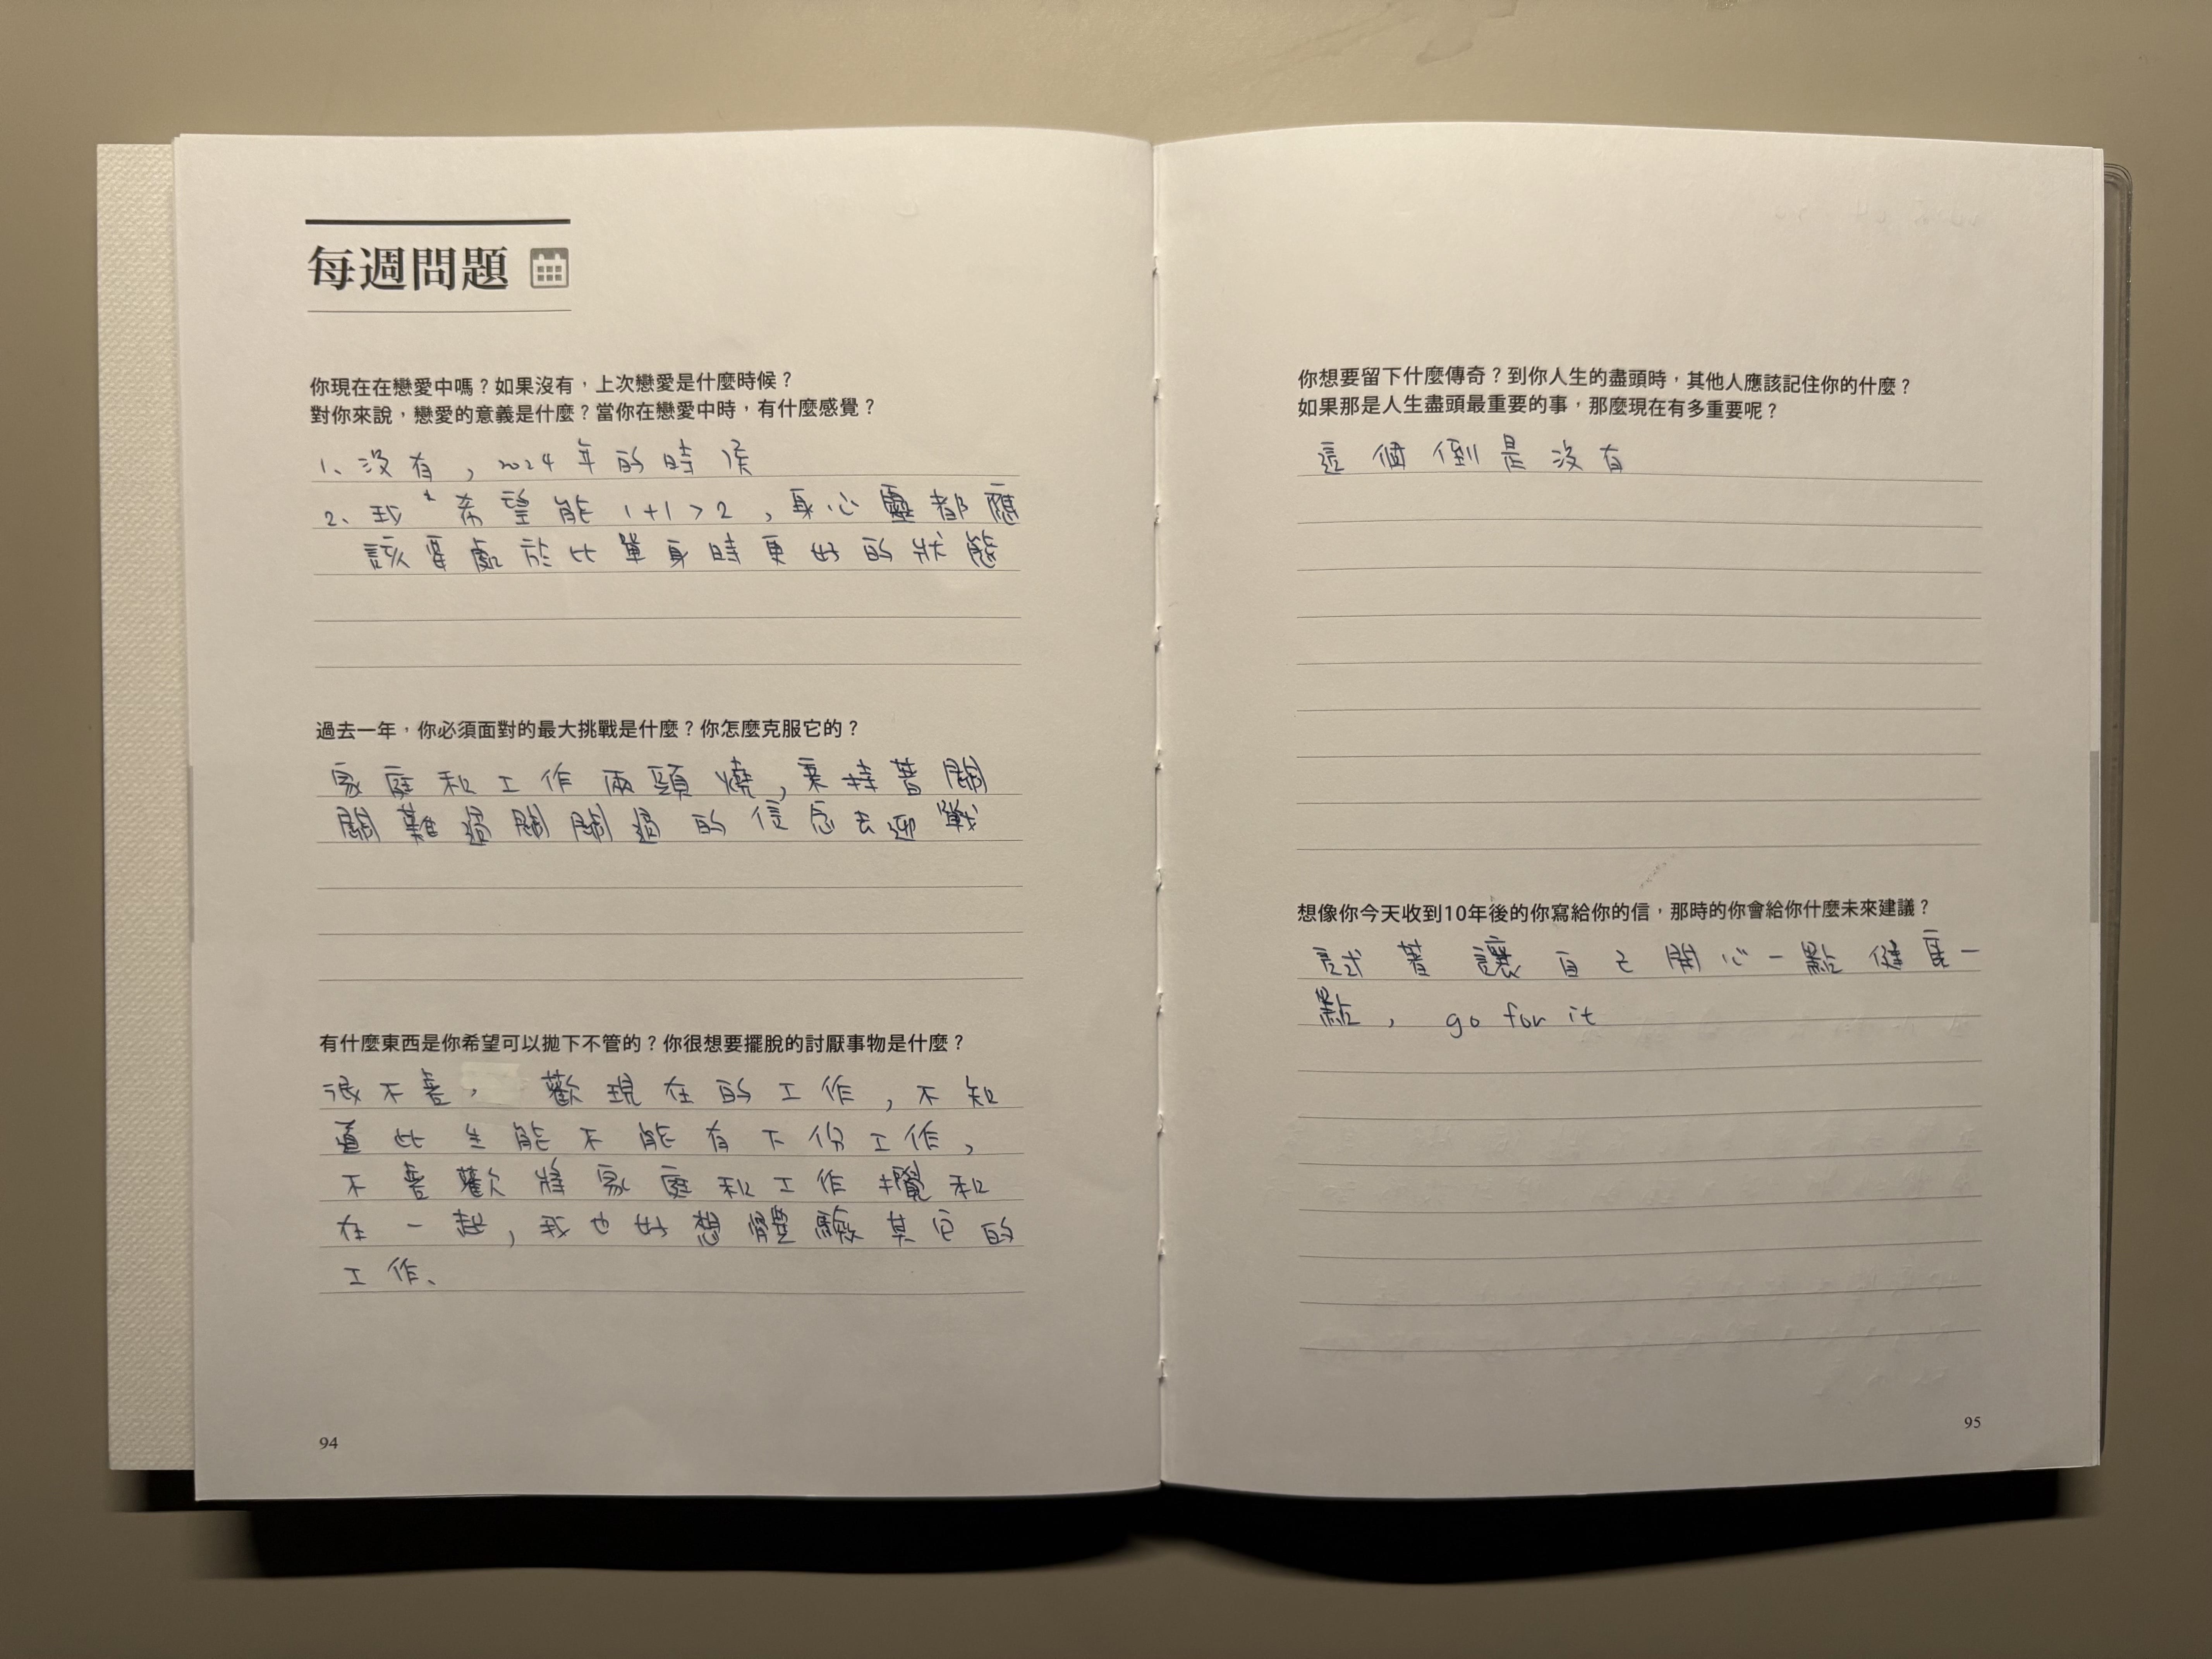 每週問題
你現在在戀愛中嗎？如果沒有，上次戀愛是什麼時候？
對你來說，戀愛的意義是什麼？當你在戀愛中時，有什麼感覺？
1、沒有，2024年的時候
2、我希望能1+1>2，身心靈都應
該要處於比單身時更好的狀態
過去一年，你必須面對的最大挑戰是什麼？你怎麼克服它的？
家庭和工作兩頭燒，秉持著關
關難過關關過的信念去迎戰
有什麼東西是你希望可以拋下不管的？你很想要擺脫的討厭事物是什麼？
很不喜歡現在的工作，不知
道此生能不能有下份工作，
不喜歡將家庭和工作攪和
在一起，我也好想體驗其它的
工作、
94
你想要留下什麼傳奇？到你人生的盡頭時，其他人應該記住你的什麼？
如果那是人生盡頭最重要的事，那麼現在有多重要呢？
這個倒是沒有
想像你今天收到10年後的你寫給你的信，那時的你會給你什麼未來建議？
試著讓自己開心一點健康一
點，go for it
95